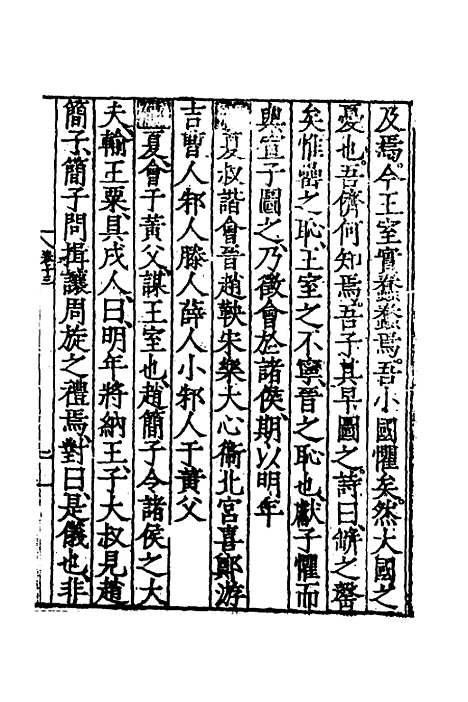 及焉今王室實蠢蠢焉吾小國懼矣然大國之
憂也吾儕何知焉吾子其早圖之詩曰缾之罄
矣惟罍之恥王室之不寧晉之恥也獻子懼而
與宣子圖之乃徵會於諸侯期以明年
夏叔詣會晉趙鞅宋樂大心衞北宮喜鄭游
吉曹人邾人滕人薛人小邾人于黃父
夏會于黃父謀王室也趙簡子令諸侯之大
夫輸王粟具戍人曰明年將納王子大叔見趙
簡子簡子問揖讓周旋之禮焉對曰是儀也非
卷十三